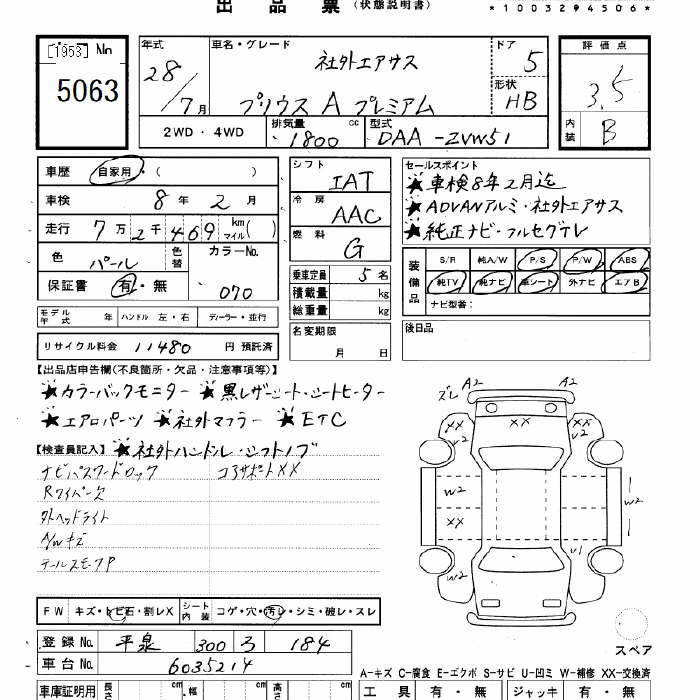 出品票(状態説明書)
*1003294506*
[1953] No 5063
年式 28/7月
車名・グレード 社外エアサス プリウス A プレミアム
ドア 5
形状 HB
評価点 3.5
内装 B
2WD・4WD
排気量 1800 cc
型式 DAA-ZVW51
車歴 自家用・( )
車検 8年 2月
走行 7万2千469 km マイル( )
色 パール 色替 カラーNo. 070
保証書 有・無
シフト IAT
冷房 AAC
燃料 G
乗車定員 5名
積載量 kg
総重量 kg
名変期限 月 日
セールスポイント
★車検8年2月迄
★ADVANアルミ・社外エアサス
★純正ナビ・フルセグTV
装備品 S/R 純A/W P/S P/W ABS
純TV 純ナビ 革シート 外ナビ エアB
ナビ型番:
後日品
モデル年式 年 ハンドル 左・右 ディーラー・並行
リサイクル料金 11480 円 預託済
【出品店申告欄(不良箇所・欠品・注意事項等)】
★カラーバックモニター ★黒レザーシート・シートヒーター
★エアロパーツ ★社外マフラー ★ETC
【検査員記入】 ★社外ハンドル・シフトノブ
ナビパスワードロック コアサポートXX
Rワイパー欠
外ヘッドライト
A/Wキズ
テールスモークP
ズレ A2 A2
XX U2 XX XX U2
W2 W2
XX
W2 U1
スペア
FW キズ・トビ石・割レX シート内装 コゲ・穴・汚レ・シミ・破レ・スレ
登録No. 平泉 300 ろ 184
車台No. 6035214
A-キズ C-腐食 E-エクボ S-サビ U-凹ミ W-補修 XX-交換済
車庫証明用 長さ cm 幅 cm 高さ cm
工具 有・無 ジャッキ 有・無